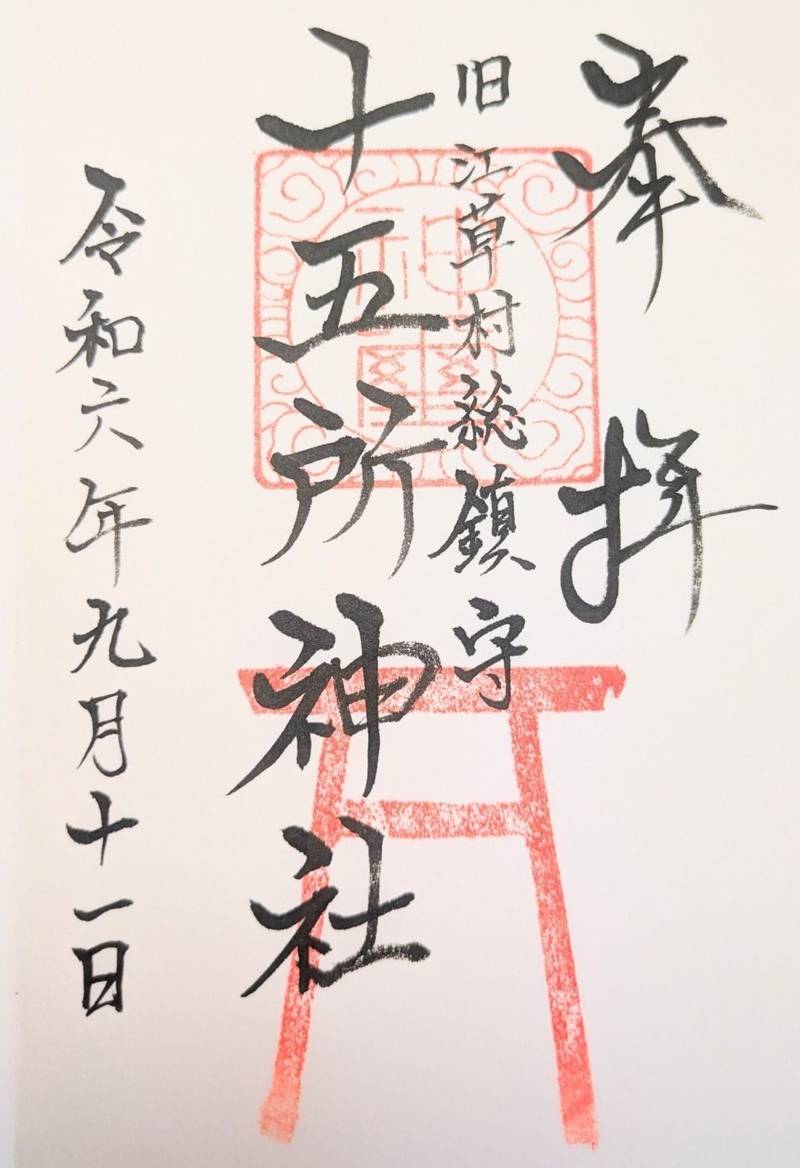 奉拝
旧江草村総鎮守
十五所神社
令和六年九月十一日